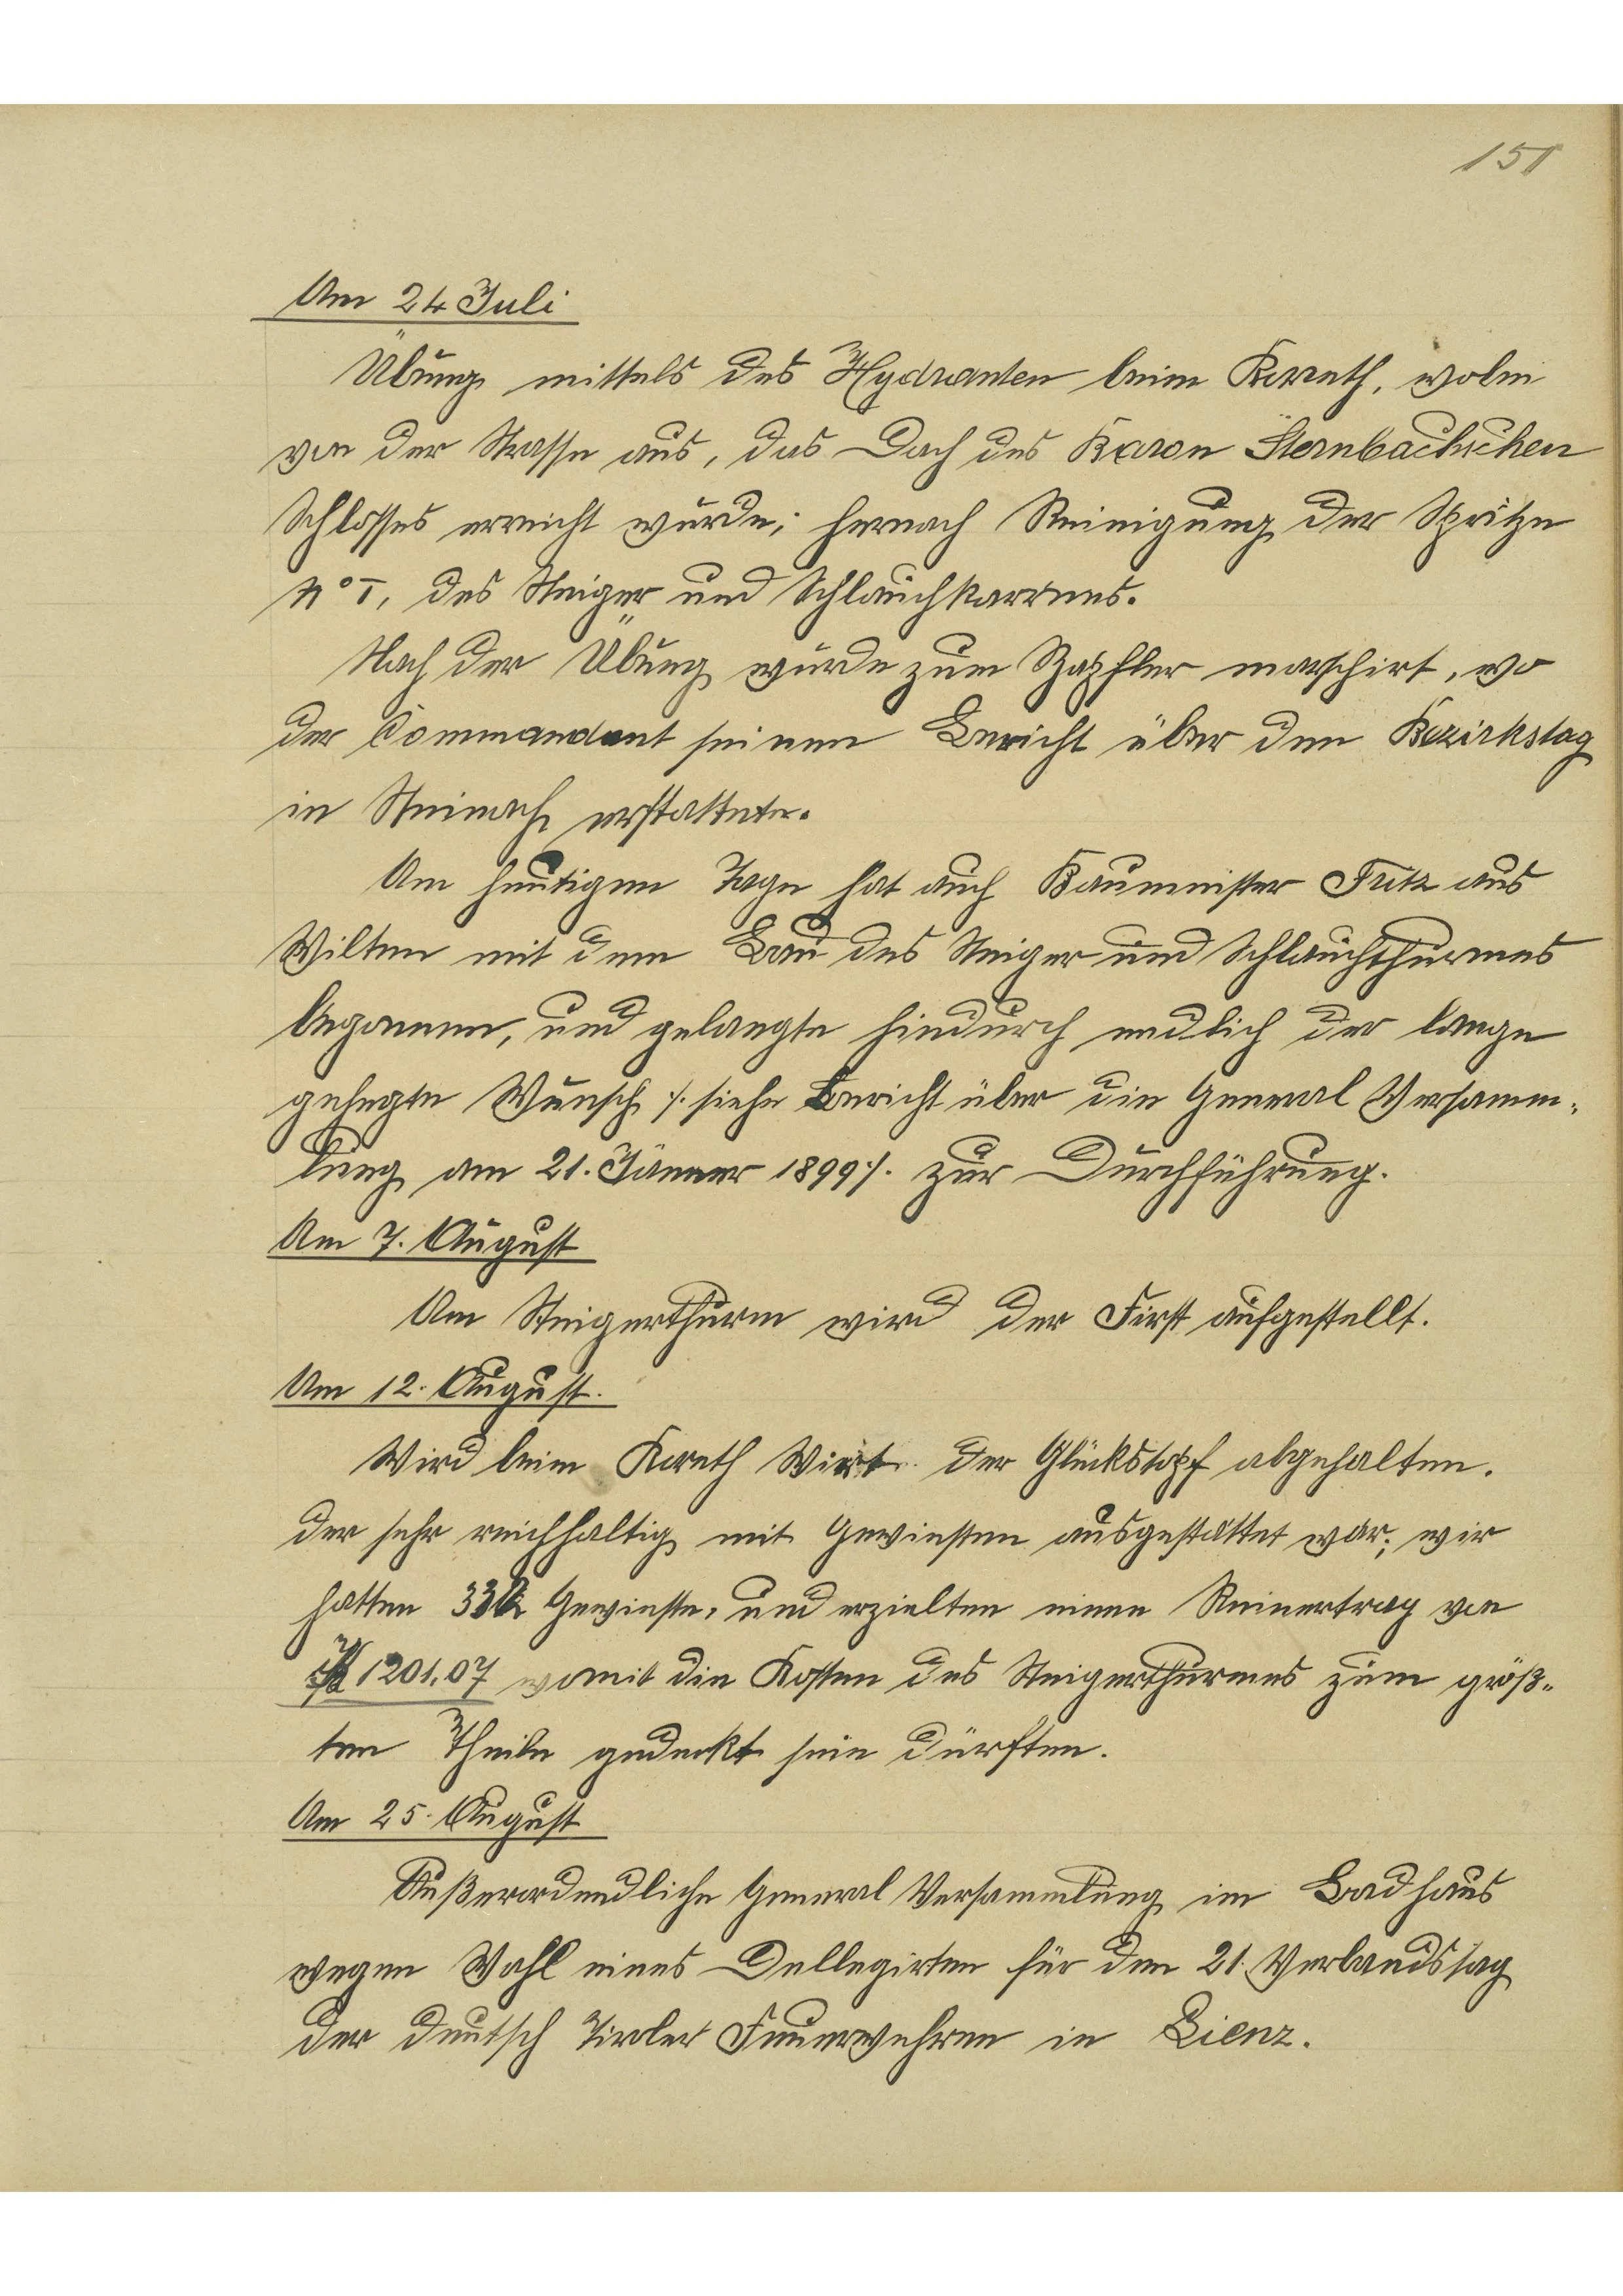 151
Am 24 Juli
Übung mittels des Hydranten beim Koreth, wobei
von der Strasse aus, das Dach des Baron Sternbachschen
Schlosses erreicht wurde; hernach Reinigung der Spritze
No I, des Steiger und Schlauchkarrens.
Nach der Übung wurde zum Stapfler marschirt, wo
der Commandant seinen Bericht über den Bezirkstag
in Steinach erstattete.
Am heutigen Tage hat auch Baumeister Fritz aus
Wilten mit dem Bau des Steiger und Schlauchthurmes
begonnen, und gelangte hindurch endlich der lange
gehegte Wunsch /. siehe Bericht über die General Versamm-
lung am 21. Jänner 1899 /. zur Durchführung.
Am 7. August
Am Steigerthurm wird der First aufgestellt.
Am 12. August.
Wird beim Koreth Wirt der Glückstopf abgehalten.
der sehr reichhaltig mit Gewinsten ausgestattet war; wir
hatten Gewinste, und erzielten einen Reinertrag von
1201.07 womit die Kosten des Steigerthurmes zum größ-
ten Theile gedeckt sein dürften.
Am 25. August
Außerordendliche General Versammlung im Badhaus
wegen Wahl eines Dellegirten für den 21. Verbandstag
der deutsch Tiroler Feuerwehren in Lienz.